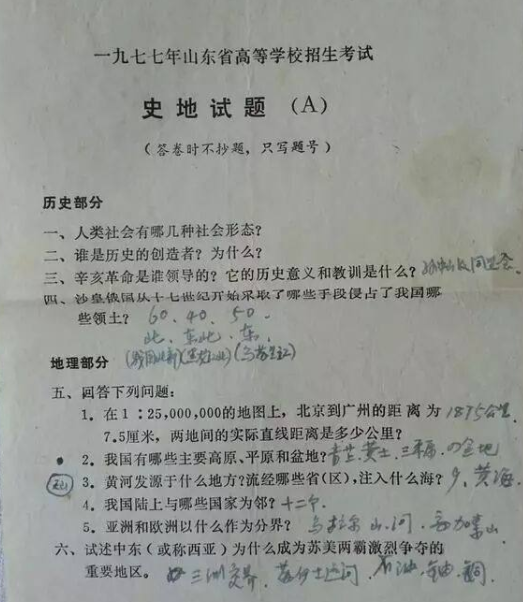 一九七七年山东省高等学校招生考试
史地试题（A）
（答卷时不抄题，只写题号）
历史部分
一、人类社会有哪几种社会形态？
二、谁是历史的创造者？为什么？
三、辛亥革命是谁领导的？它的历史意义和教训是什么？ 同盟会
四、沙皇俄国从十七世纪开始采取了哪些手段侵占了我国哪
些领土？ 60、40、50、
北、东北、东、
地理部分
五、回答下列问题：
1．在1：25,000,000的地图上，北京到广州的距离为 1875公里
7.5厘米，两地间的实际直线距离是多少公里？
2．我国有哪些主要高原、平原和盆地？ 三平原、四盆地
3．黄河发源于什么地方？流经哪些省（区），注入什么海？ 9、黄海
4．我国陆上与哪些国家为邻？ 十二个．
5．亚洲和欧洲以什么作为分界？ 乌拉尔山、河、高加索山
六、试述中东（或称西亚）为什么成为苏美两霸激烈争夺的
重要地区。 三洲交界、苏伊士运河、石油、铜．